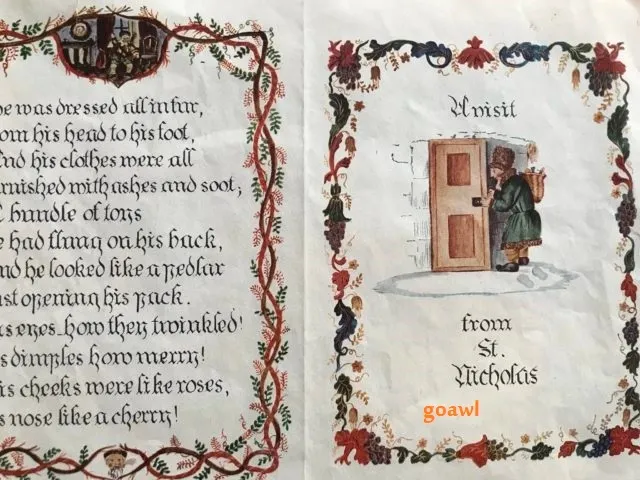 he was dressed all in fur,
rom his head to his foot,
nd his clothes were all
rnished with ashes and soot;
bundle of toys
e had flung on his back,
nd he looked like a pedlar
ust opening his pack.
is eyes how they twinkled!
s dimples how merry!
is cheeks were like roses,
s nose like a cherry!
A visit
from
St.
Nicholas
goawl